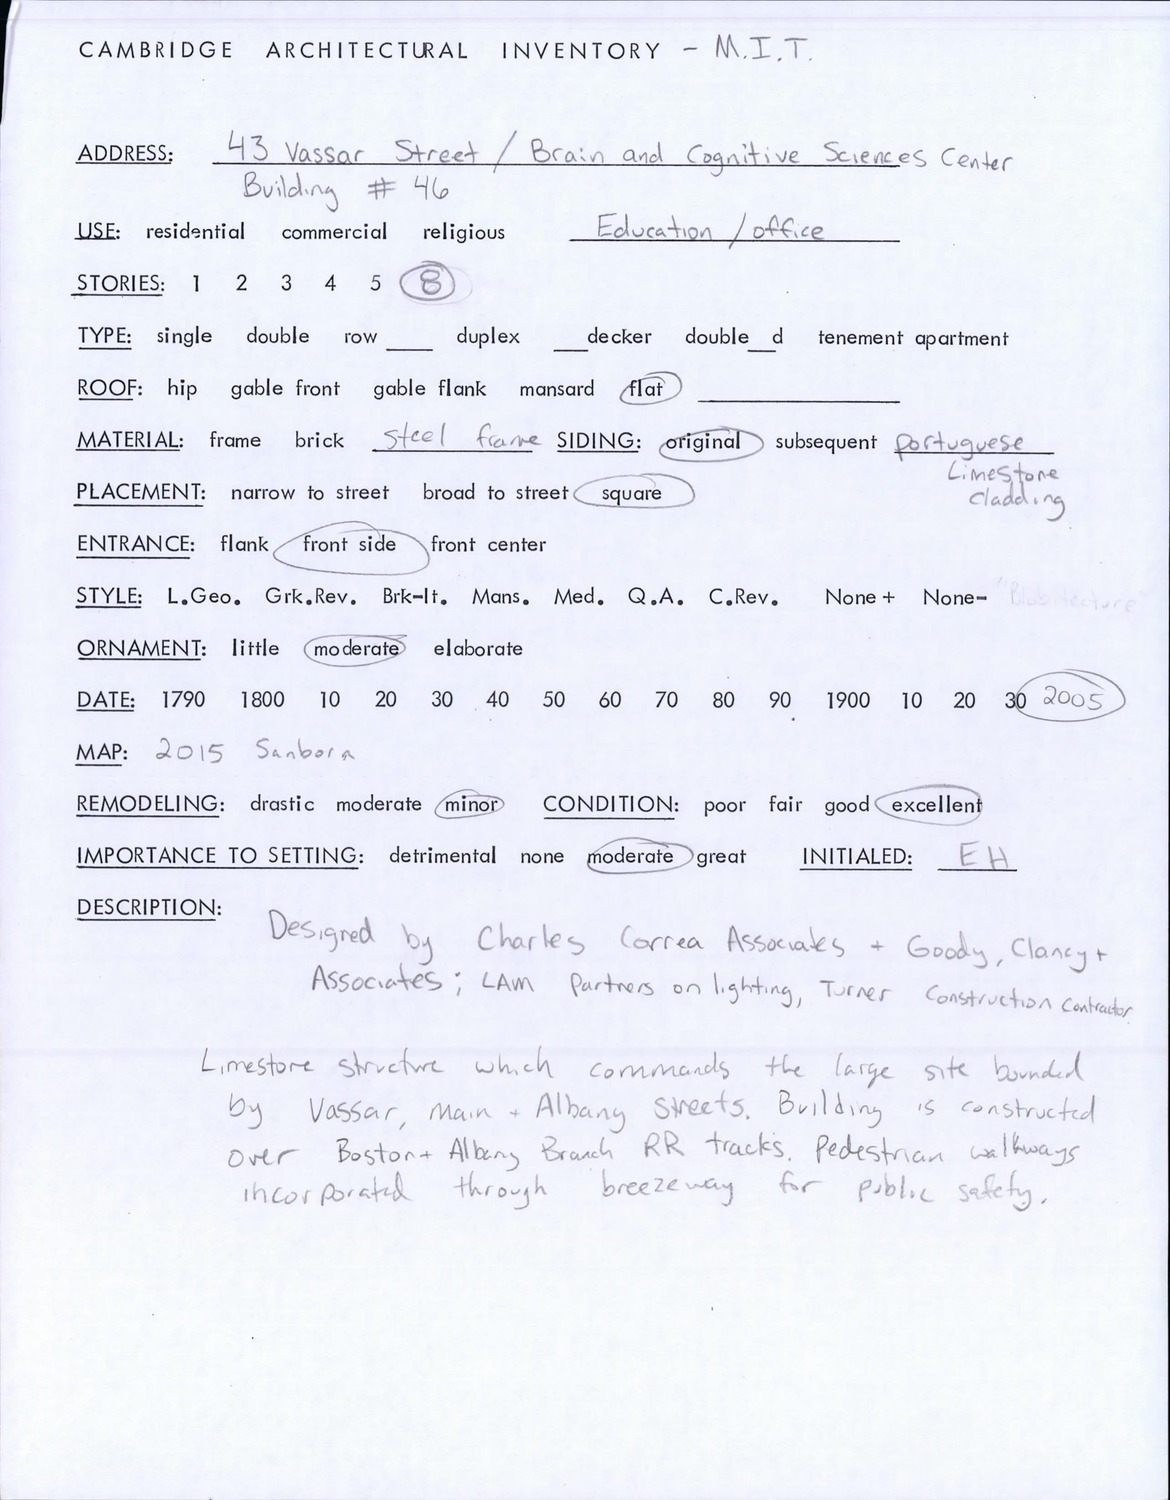 CAMBRIDGE ARCHITECTURAL INVENTORY - M.I.T.
ADDRESS: 43 Vassar Street / Brain and Cognitive Sciences Center
Building # 46
USE: residential commercial religious Education / office
STORIES: 1 2 3 4 5 8
TYPE: single double row ___ duplex ___decker double__d tenement apartment
ROOF: hip gable front gable flank mansard flat
MATERIAL: frame brick steel frame SIDING: original subsequent portuguese
Limestone
cladding
PLACEMENT: narrow to street broad to street square
ENTRANCE: flank front side front center
STYLE: L.Geo. Grk.Rev. Brk-It. Mans. Med. Q.A. C.Rev. None + None- "Blobitecture"
ORNAMENT: little moderate elaborate
DATE: 1790 1800 10 20 30 40 50 60 70 80 90 1900 10 20 30 2005
MAP: 2015 Sanborn
REMODELING: drastic moderate minor CONDITION: poor fair good excellent
IMPORTANCE TO SETTING: detrimental none moderate great INITIALED: EH
DESCRIPTION:
Designed by Charles Correa Associates + Goody, Clancy +
Associates; LAM Partners on lighting, Turner Construction Contractor
Limestone structure which commands the large site bounded
by Vassar, Main + Albany Streets. Building is constructed
over Boston + Albany Branch RR tracks. Pedestrian walkways
incorporated through breezeway for public safety.